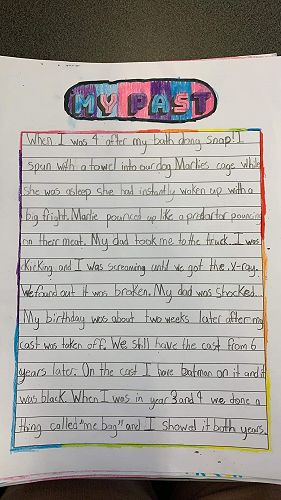 MY PAST
When I was 4 after my bath dang snap! I
spun with a towel into our dog Marlies cage while
she was asleep she had instantly woken up with a
big fright. Marlie pounced up like a predartor pouncing
on their meat. My dad took me to the truck I was
kicking and I was screaming until we got the x-ray.
We found out it was broken. My dad was shocked.
My birthday was about two weeks later after my
cast was taken off. We still have the cast from 6
years later. On the cast I have Batman on it and it
was black. When I was in year 3 and 4 we done a
thing called "me bag" and I showed it both years.